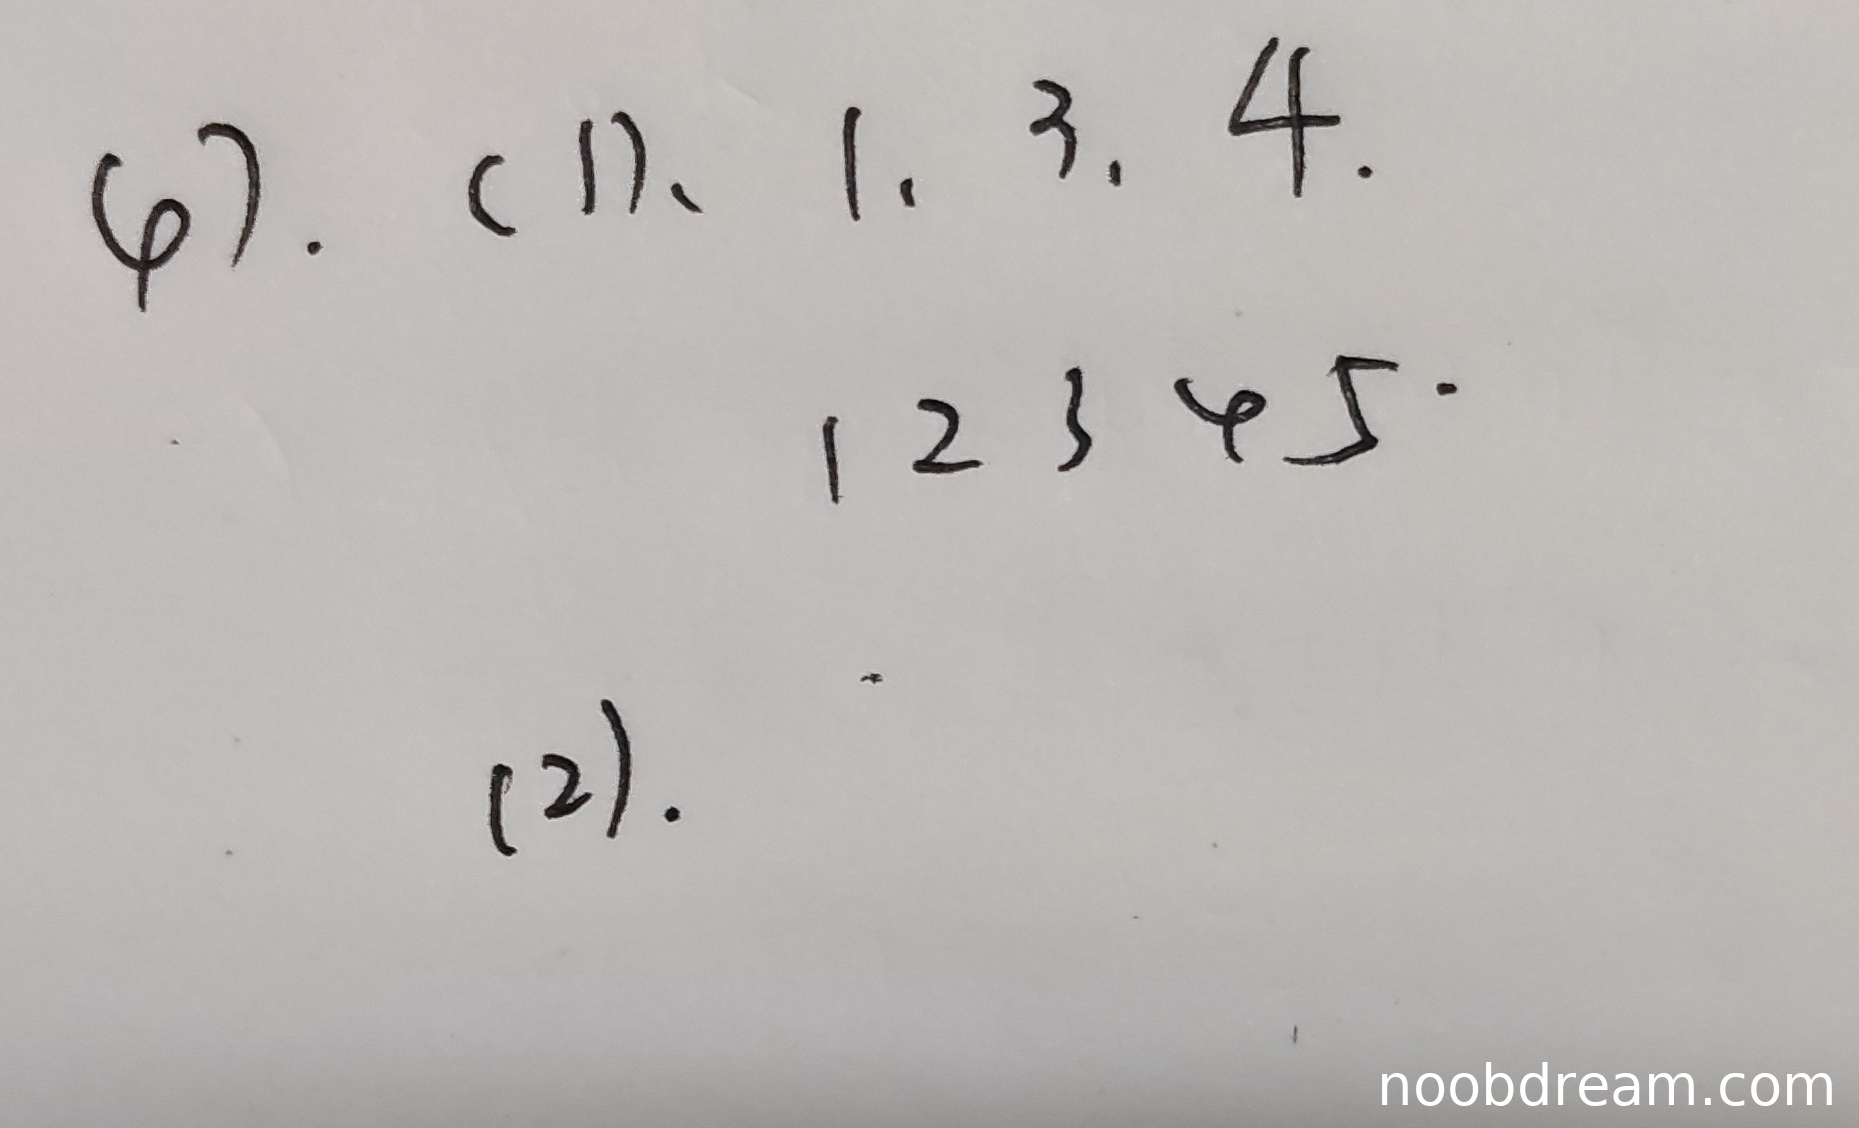 (4). (1)、 1. 3. 4.
1 2 3 4 5.
(2).
noobdream.com